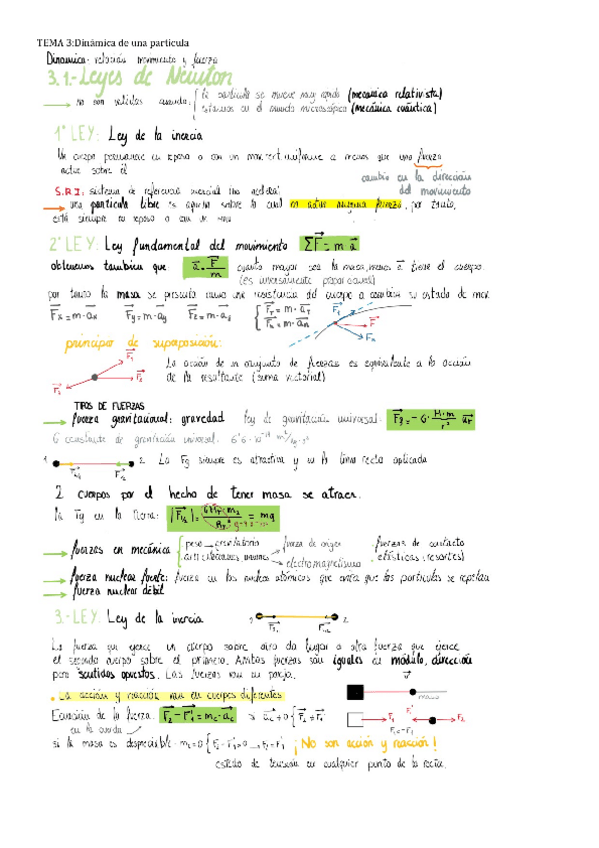 TEMA 3:Dinámica de una partícula
Dinámica: relación movimiento y fuerza
3.1.-Leyes de Newton
→ no son válidas cuando: { la partícula se mueve muy rápido (mecánica relativista)
estamos en el mundo microscópico (mecánica cuántica)
1ª LEY: Ley de la inercia
Un cuerpo permanece en reposo o con un mov. rect. uniforme a menos que una fuerza
actúe sobre él
cambio en la dirección
del movimiento
S.R.I: sistema de referencia inercial (no acelera)
→ una partícula libre es aquella sobre la cual no actúa ninguna fuerza, por tanto,
está siempre en reposo o con un mru
2ª LEY: Ley fundamental del movimiento ΣF = m·a
obtenemos también que: a = F/m cuanto mayor sea la masa, menos a tiene el cuerpo
por tanto la masa se presenta como una resistencia del cuerpo a cambiar su estado de mov.
Fx = m·ax Fy = m·ay Fz = m·az
principio de superposición:
La acción de un conjunto de fuerzas es equivalente a la acción
de la resultante (suma vectorial)
TIPOS DE FUERZAS
→ fuerza gravitacional: gravedad ley de gravitación universal: Fg = -G· M·m/r² ur
G constante de gravitación universal.
1 2 La Fg siempre es atractiva y en la línea recta aplicada
2 cuerpos por el hecho de tener masa se atraen.
la Fg en la tierra: = mg
→ fuerzas en mecánica fuerza de origen
electromagnetismo
fuerzas de contacto
elásticas (resortes)
→ fuerza nuclear fuerte: fuerza en los núcleos atómicos que evita que las partículas se repelan
→ fuerza nuclear débil
3.-LEY: Ley de la inercia
La fuerza que ejerce un cuerpo sobre otro da lugar a otra fuerza que ejerce
el segundo cuerpo sobre el primero. Ambas fuerzas son iguales en módulo, dirección
pero sentidos opuestos. Las fuerzas van en pareja.
La acción y reacción van en cuerpos diferentes
Ecuación de la fuerza F2 - F1 = mc·ac
en la cuerda
si la masa es despreciable ¡No son acción y reacción!
estado de tensión en cualquier punto de la recta.